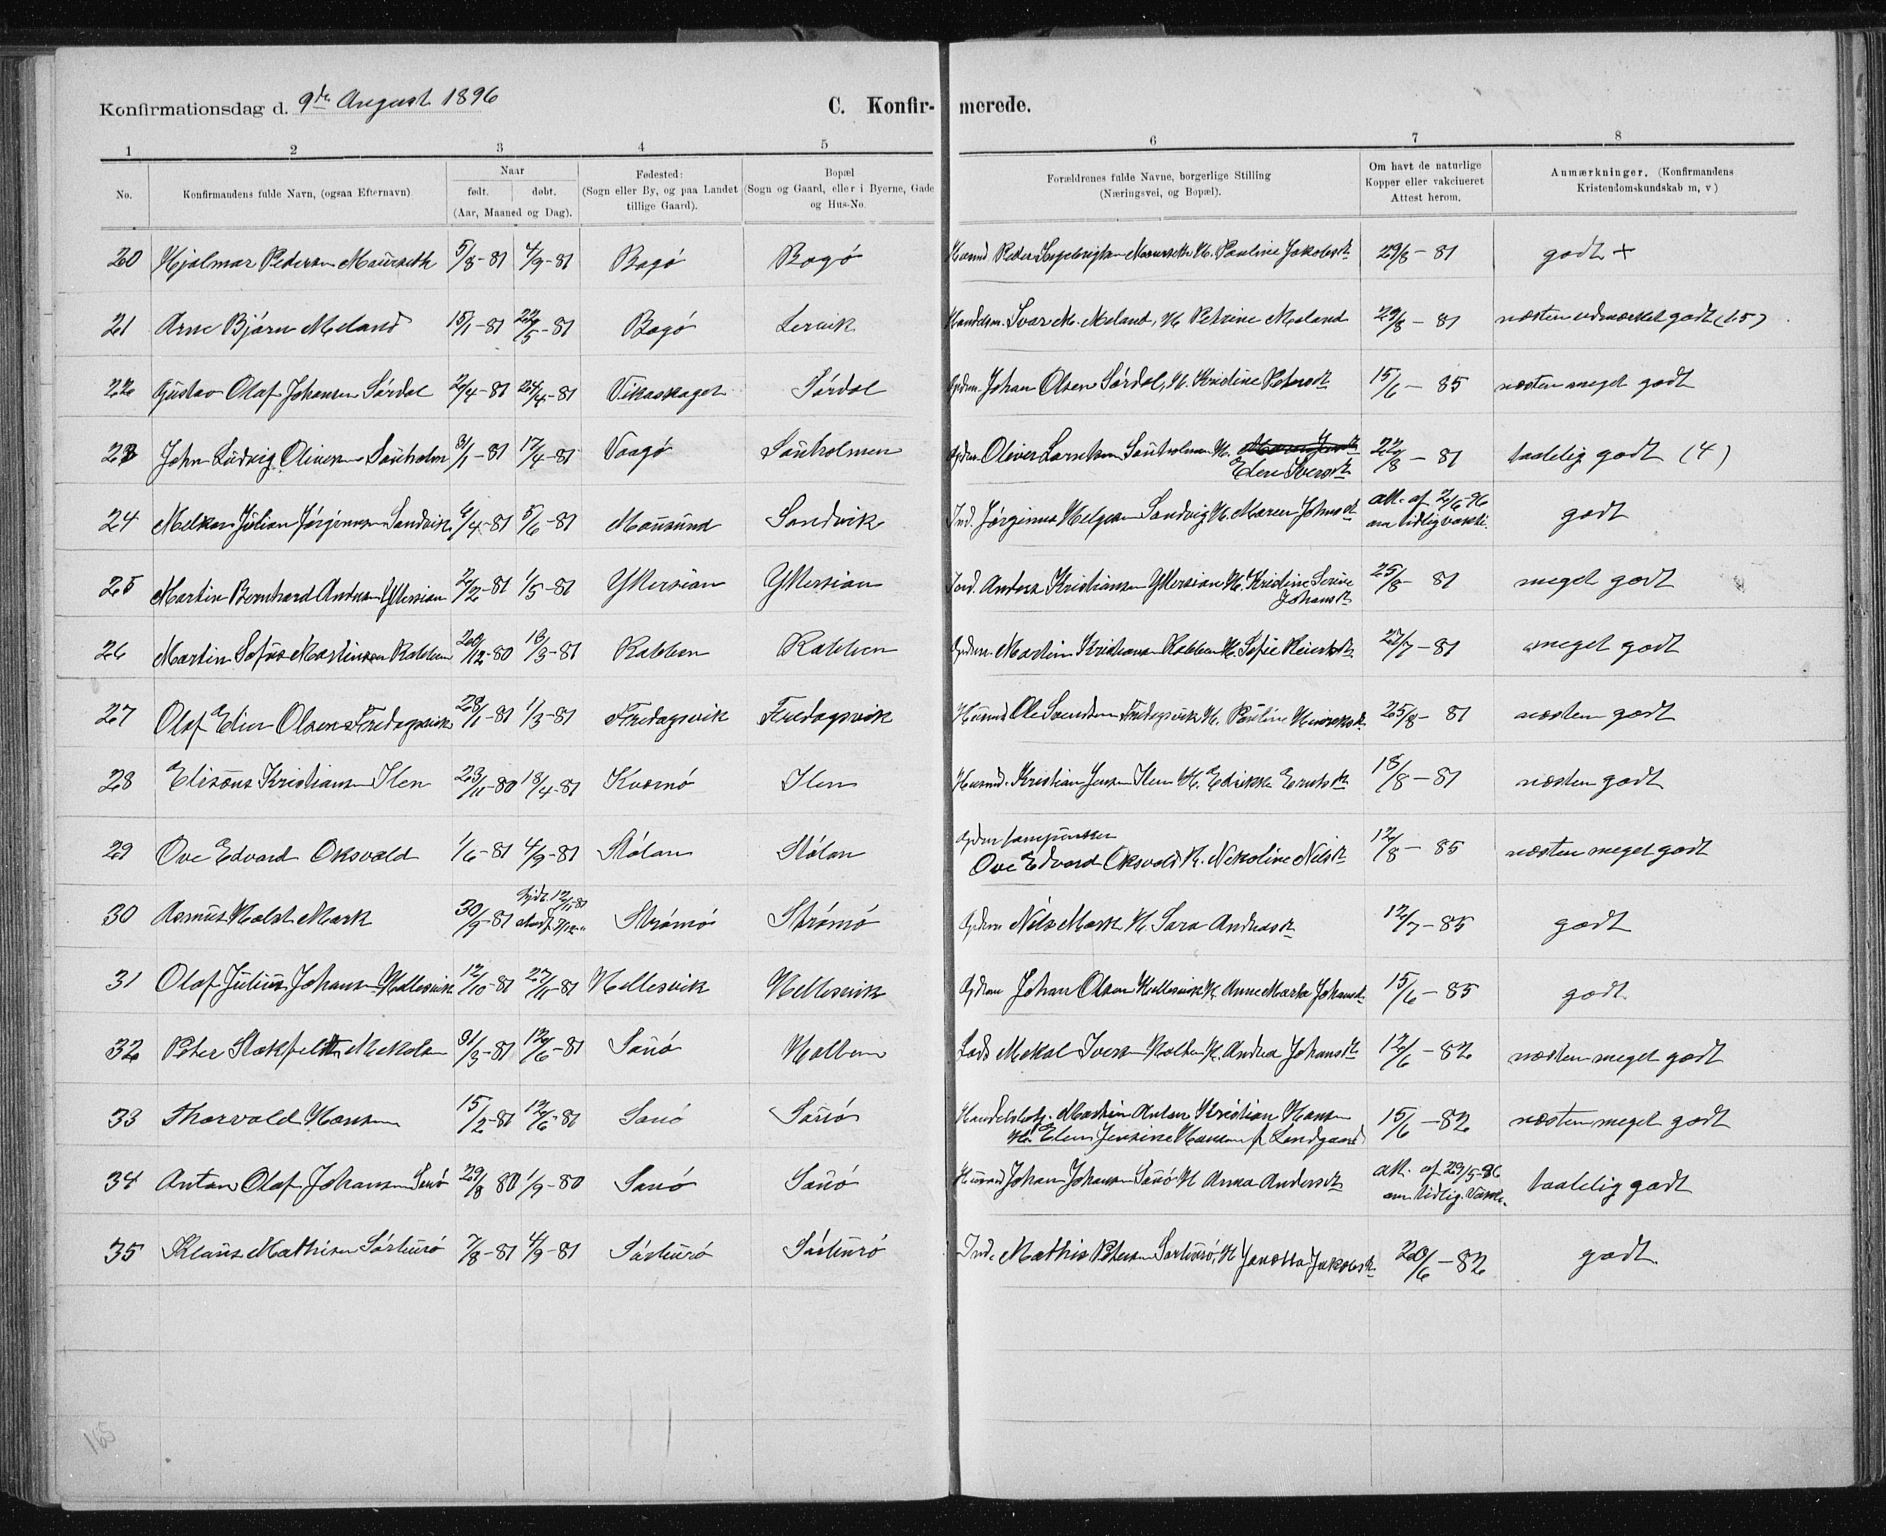 Konfirmationsdag d. 9de August 1896 C. Konfir- merede.
1 2 3 4 5 6 7 8
No. Konfirmandens fulde Navn, (ogsaa Efternavn) Naar født. døbt. (Aar, Maaned og Dag). Fødested: (Sogn eller By, og paa Landet tillige Gaard). Bopæl (Sogn og Gaard, eller i Byerne, Gade og Hus-No. Forældrenes fulde Navne, borgerlige Stilling (Næringsvei, og Bopæl). Om havt de naturlige Kopper eller vakcineret Attest herom. Anmærkninger. (Konfirmandens Kristendomskundskab m, v)
20 Hjalmar Pedersen Maurseth 5/8-81 4/9-81 Bogø Bogø Husmd Peder Maurseth H. Pauline Jakobsdt 29/8-81 godt +
21 Arne Bjørn Meland 15/1-81 22/5-81 Bogø Lervik Handelsm. Ivar M. Meland, H. Petrine Meland 29/8-81 næsten udmærket godt (1.5)
22 Gustav Olaf Johansen Sørdal 2/4-81 24/4-81 Vikaskaget Sørdal Gdrm. Johan Olsen Sørdal, H. Kristine Petersdt 15/6-85 næsten meget godt
23 John Ludvig Oliversen Sauholm 3/1-81 17/4-81 Vaagø Sauholmen Gdrm Oliver Sauholmen H. Elen Iversdt 22/8-81 taalelig godt (4)
24 Melkior Julian Jørginusen Sandvik 4/4-81 5/6-81 Mausund Sandvik Ind. Jørginus Helgesen Sandvig H. Maren Johnsdt Att. af 2/6-96 om tidlig vakci. godt
25 Martin Bernhard Andersen Yttersian 2/2-81 1/5-81 Yttersian Yttersian Ind. Anders Kristiansen Yttersian H. Kristine Serine Johansdt 25/8-81 meget godt
26 Martin Sofus Martinsen Rabben 20/12-80 13/3-81 Rabben Rabben Gdrm. Martin Kristiansen Rabben H. Sofie 27/7-81 meget godt
27 Olaf Elier Olsen Fredagsvik 28/1-81 1/3-81 Fredagsvik Fredagsvik Husmd Ole Svendsen Fredagsvik H. Pauline 25/8-81 næsten godt
28 Elisæus Kristiansen Ilen 23/11-80 18/4-81 Kværnø Ilen Husmd. Kristian Jensen Ilen H. Edrikke 18/8-81 næsten godt
29 Ove Edvard Oksvold 1/6-81 4/9-81 Stølan Stølan Gdrm Ove Edvard Oksvold H. Nikoline Nilsdt 12/8-85 næsten meget godt
30 Asmus Holst Mark 30/9-81 Hjdt. 12/11-81 Strømø Strømø Gdrm Nils Mark H. Sara Andreasdt 12/7-85 godt
31 Olaf Julius Johansen Hellesvik 12/10-81 27/11-81 Hellesvik Hellesvik Gdrm Johan Olsen Hellesvik H. Anne Marta Johansdt 15/6-85 godt
32 Peter Stokfeldt Mekalsen 31/3-81 12/6-81 Sauø Holben Lods Mekal Iversen Holben H. Andrea Johansdt 12/6-82 næsten meget godt
33 Thorvald Hansen 15/2-81 12/6-81 Sauø Sauø Martin Anton Kristian Hansen H. Elen Jensine Hansen f. Lundgaard 15/6-82 næsten meget godt
34 Anton Olaf Johansen Sauø 29/8 80 1/9-80 Sauø Sauø Husmd Johan Johansen Sauø H Anna Andersdt Att. af 29/5-96 om tidlig. Vakc. taalelig godt
35 Klaus Mathisen Sørburø 7/8-81 4/9-81 Sørburø Sørburø Ind. Mathis Petersen Sørburø, H Janetta Jakobsdt 20/6-82 godt
165